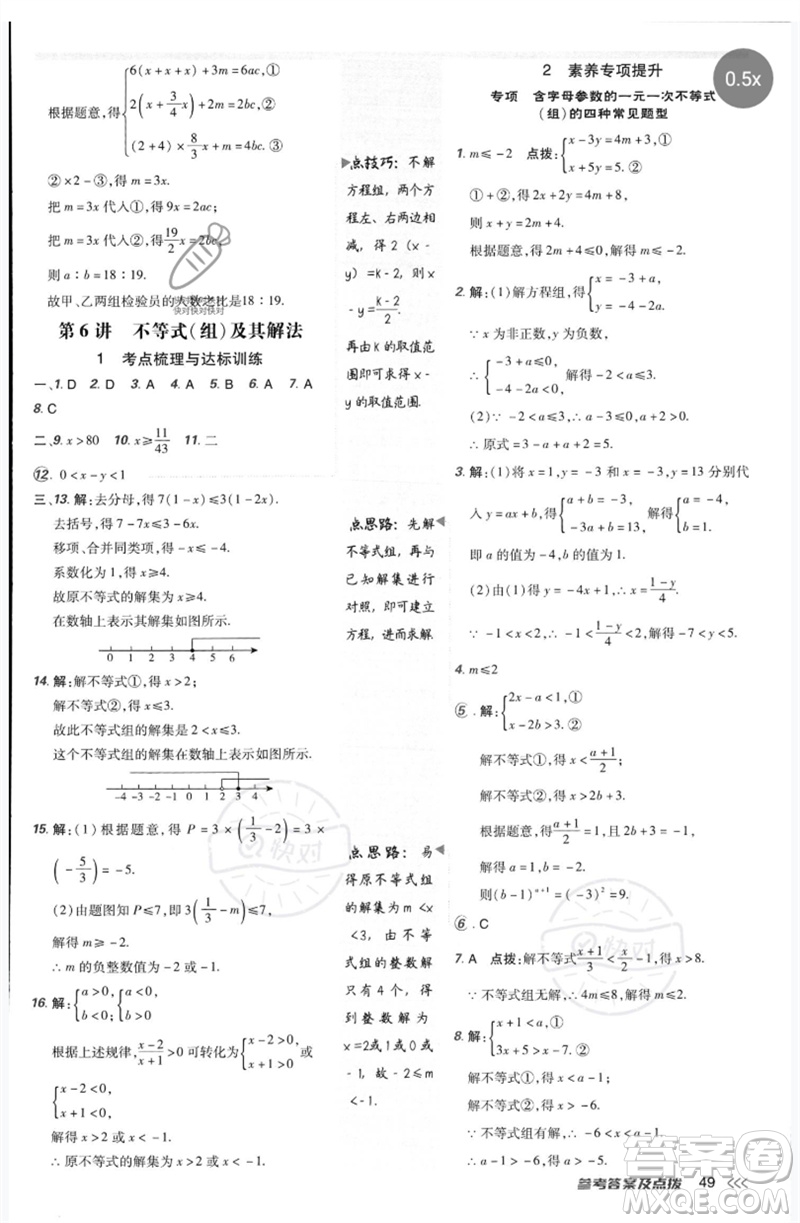 根据题意,得{6(x+x+x)+3m=9ac,①
2(x+3/4x)+m=2ac,②
(2+4)×8/3x+m=2bc.③
②×2-③,得m=3x;
把m=3x代入①,得9x=2ac;
把m=3x代入②,得19/2x=2bc,
则a:b=18:19.
故甲、乙两组检验员的人数之比是18:19.
快对快对快对
第6讲 不等式(组)及其解法
1 考点梳理与达标训练
一、1.D 2.D 3.A 4.A 5.B 6.A 7.A
8.C
二、9.x>80 10.x≥11/43 11.二
12.0<x-y<1
三、13.解:去分母,得7(1-x)≤3(1-2x).
去括号,得7-7x≤3-6x.
移项、合并同类项,得-x≤-4.
系数化为1,得x≥4.
故原不等式的解集为x≥4.
在数轴上表示其解集如图所示.
0 1 2 3 4 5 6
14.解:解不等式①,得x>2;
解不等式②,得x≤3.
故此不等式组的解集是2<x≤3.
这个不等式组的解集在数轴上表示如图所示.
-4 -3 -2 -1 0 1 2 3 4 5 6
15.解:(1)根据题意,得P=3×(1/3-2)=3×
(-5/3)=-5.
(2)由题图知P≤7,即3(1/3-m)≤7,
解得m≥-2.
∴m的负整数值为-2,-1.
16.解:{a>0,b<0;{a<0,b>0
根据上述规律,x-2/x+1>0可转化为{x-2>0,x+1>0或
{x-2<0,
x+1<0,
解得x>2或x<-1.
∴原不等式的解集是x>2或x<-1.
点技巧:不解
方程组,两个方
程左、右两边相
减,得2(x-
y)=k-2,x
-y=k-2/2.
再由K的取值范
围即可求得x-
y的取值范围.
点思路:先解
不等式组,再与
已知解集进行
对照,即可建立
方程,进而求解.
点思路:易
得原不等式组
的解集为m<x
<3,由不等
式组的整数解
只有4个,得
到整数解为x
=2或1或0或
-1,故-2≤m
<-1.
2 素养专项提升
专项 含字母参数的一元一次不等式
(组)的四种常见题型
0.5x
1.m≤-2 点拨:{x-3y=4m+3,①
x+5y=5.②
①+②,得2x+2y=4m+8,
则x+y=2m+4,
根据题意,得2m+4≤0,解得m≤-2.
2.解:(1)解方程组,得{x=-3+a,
y=-4-2a.
∵x为非正数,y为负数,
∴{-3+a≤0,
-4-2a<0,解得-2<a≤3.
(2)∵-2<a≤3,
∴原式=
3.解:(1)将x=1,y=-3和x=-3,y=13分别代
入y=ax+b,得{a+b=-3,-3a+b=13,解得{a=-4,b=1.
即a的值为-4,b的值为1.
(2)由(1)得y=-4x+1,∴x=1-y/4.
∵-1<x<2,∴-1<1-y/4<2,解得-7<y<5.
4.m≤2
5.解:{2x-a<1,①
x-2b>3.②
解不等式①,得x<a+1/2;
解不等式②,得x>2b+3.
根据题意,得a+1/2=1,2b+3=-1,
解得a=1,b=-2.
则(b-1)ᵃ⁺¹=(-3)²=9.
6.C
7.A 点拨:解不等式x+1/3<x/2-1,得x>8.
∵不等式组无解,∴4m≤8,解得m≤2.
8.解:{x+1<a,①
3x+5>x-7.②
解不等式①,得x<a-1.
解不等式②,得x>-6.
∵不等式组有解,∴-6<x<a-1,
答案圈
参考答案及点拨 49